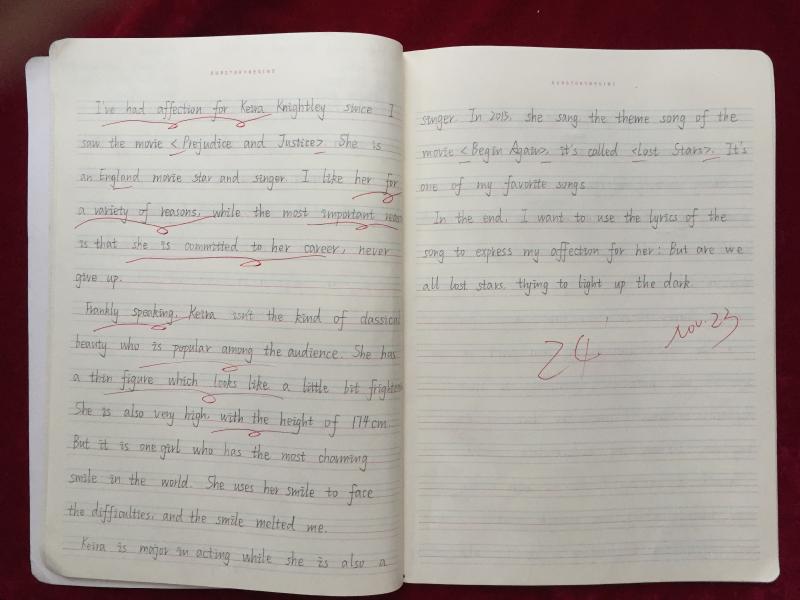 I've had affection for Keira Knightley since I
saw the movie <Prejudice and Justice>. She is
an England movie star and singer. I like her for
a variety of reasons, while the most important reason
is that she is committed to her career, never
give up.
Frankly speaking, Keira isn't the kind of classical
beauty who is popular among the audience. She has
a thin figure which looks like a little bit frighten
She is also very high, with the height of 174cm.
But it is one girl who has the most charming
smile in the world. She uses her smile to face
the difficulties, and the smile melted me.
Keira is major in acting while she is also a
singer. In 2013, she sang the theme song of the
movie <Begin Again>, it's called <Lost Stars>. It's
one of my favorite songs.
In the end, I want to use the lyrics of the
song to express my affection for her: But are we
all lost stars, trying to light up the dark.
24
Nov. 23